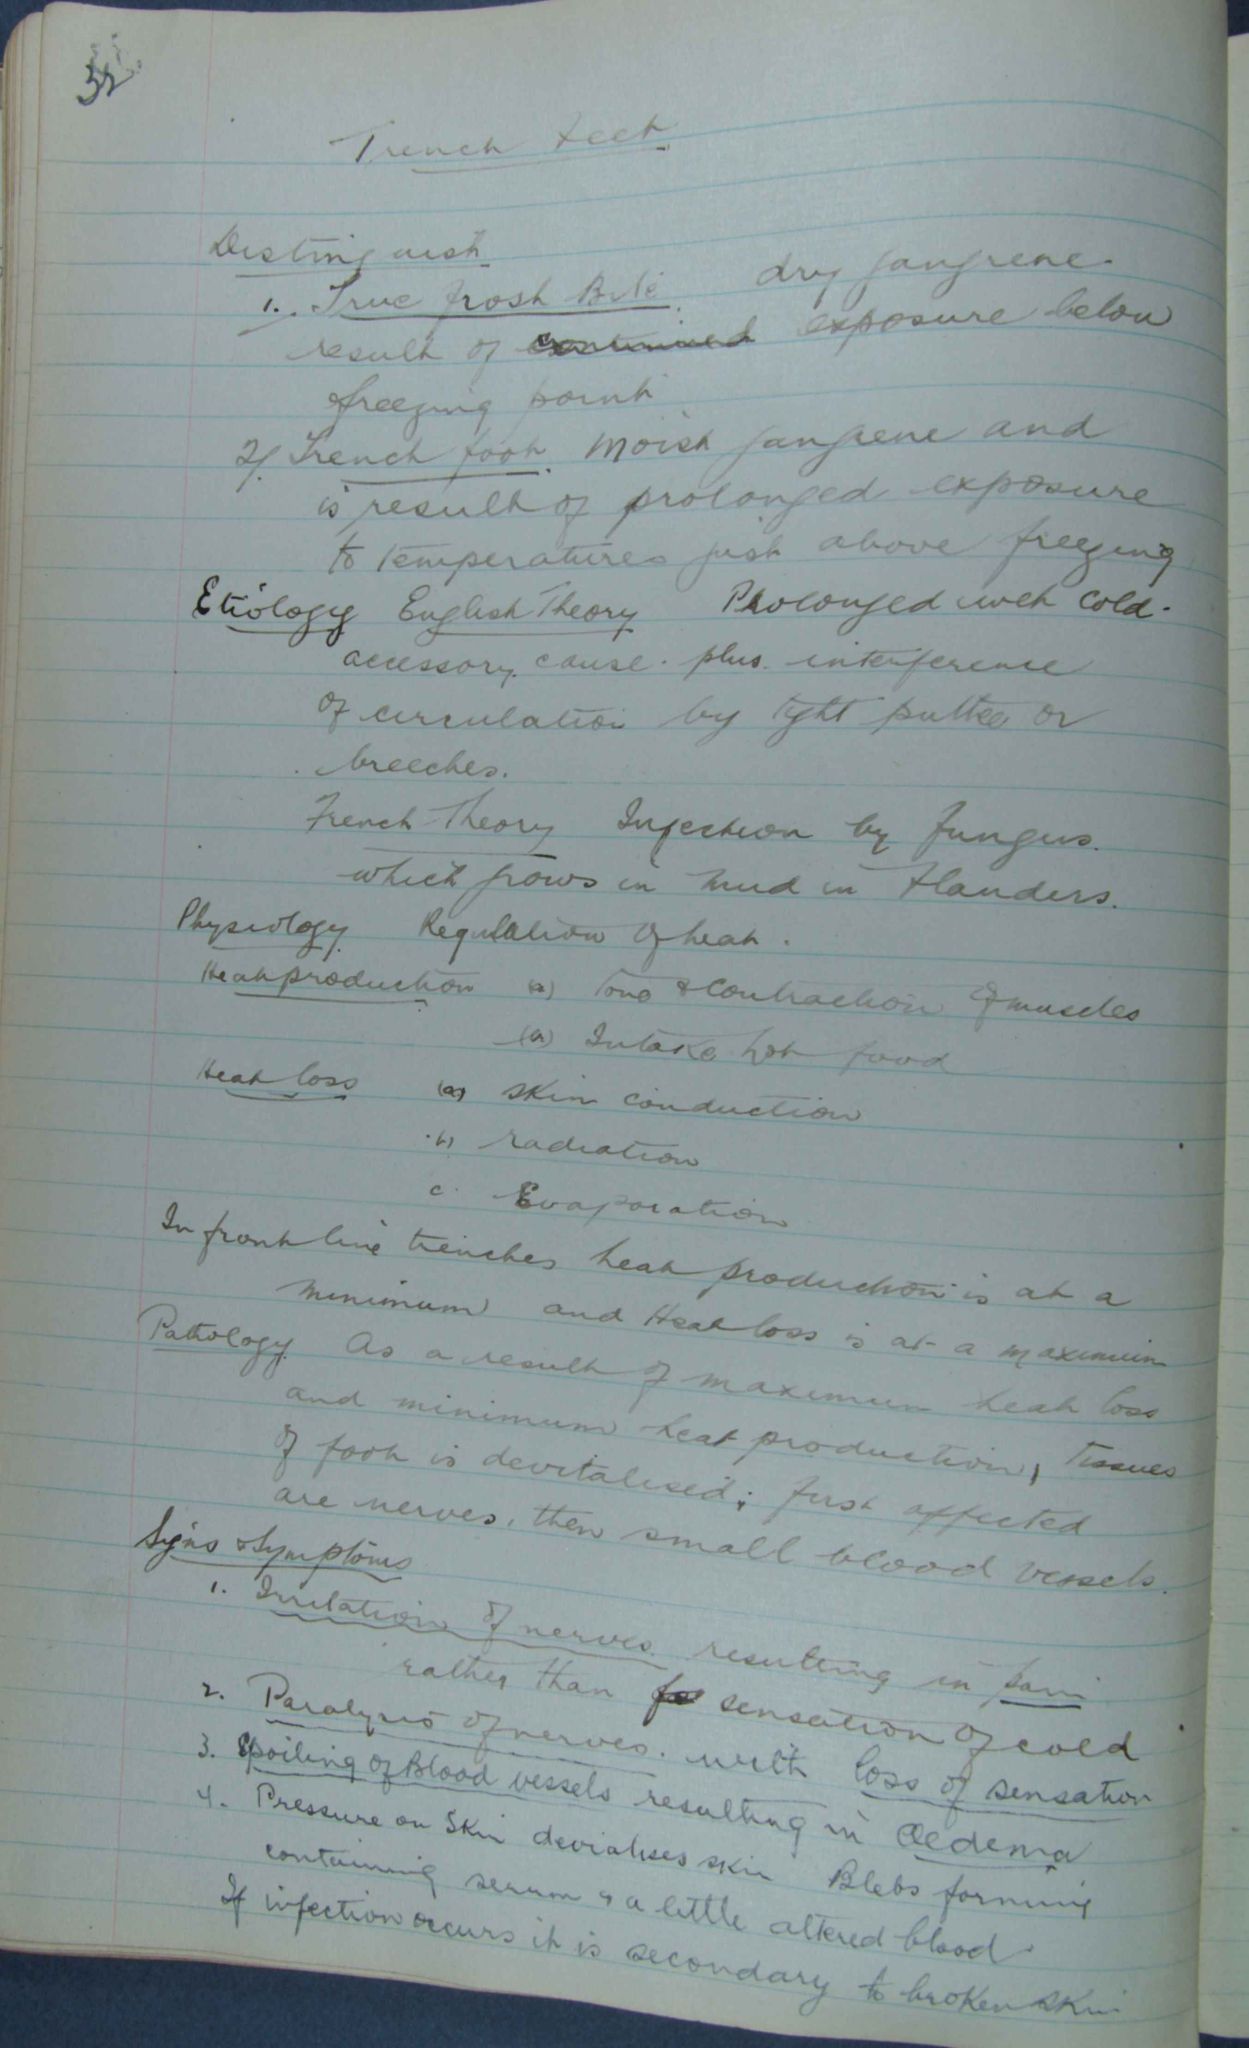 52
Trench Feet
Distinguish
1. True frost Bite dry gangrene.
result of continued exposure below
freezing point
2/. Trench foot. Moist gangrene and
is result of prolonged exposure
to temperatures just above freezing
Etiology English Theory Prolonged wet cold.
accessory cause. plus interference
of circulation by tight puttee or
breeches.
French Theory Infection by fungus.
which grows in mud in Flanders.
Physiology Regulation of heat.
Heat production (a) Tone & contraction of muscles
(a) Intake hot food
Heat loss (a) skin conduction
(b) radiation
c. Evaporation
In front line trenches heat production is at a
minimum and Heat loss is at a maximum
Pathology As a result of maximum heat loss
and minimum heat production, tissues
of foot is devitalised; first affected
are nerves, then small blood vessels.
Signs & Symptoms
1. Irritation of nerves resulting in pain
rather than sensation of cold
2. Paralysis of nerves. with loss of sensation
3. Spoiling of Blood vessels resulting in Oedema
4. Pressure on Skin devialises skin Blebs forming
containing serum & a little altered blood.
If infection occurs it is secondary to broken skin